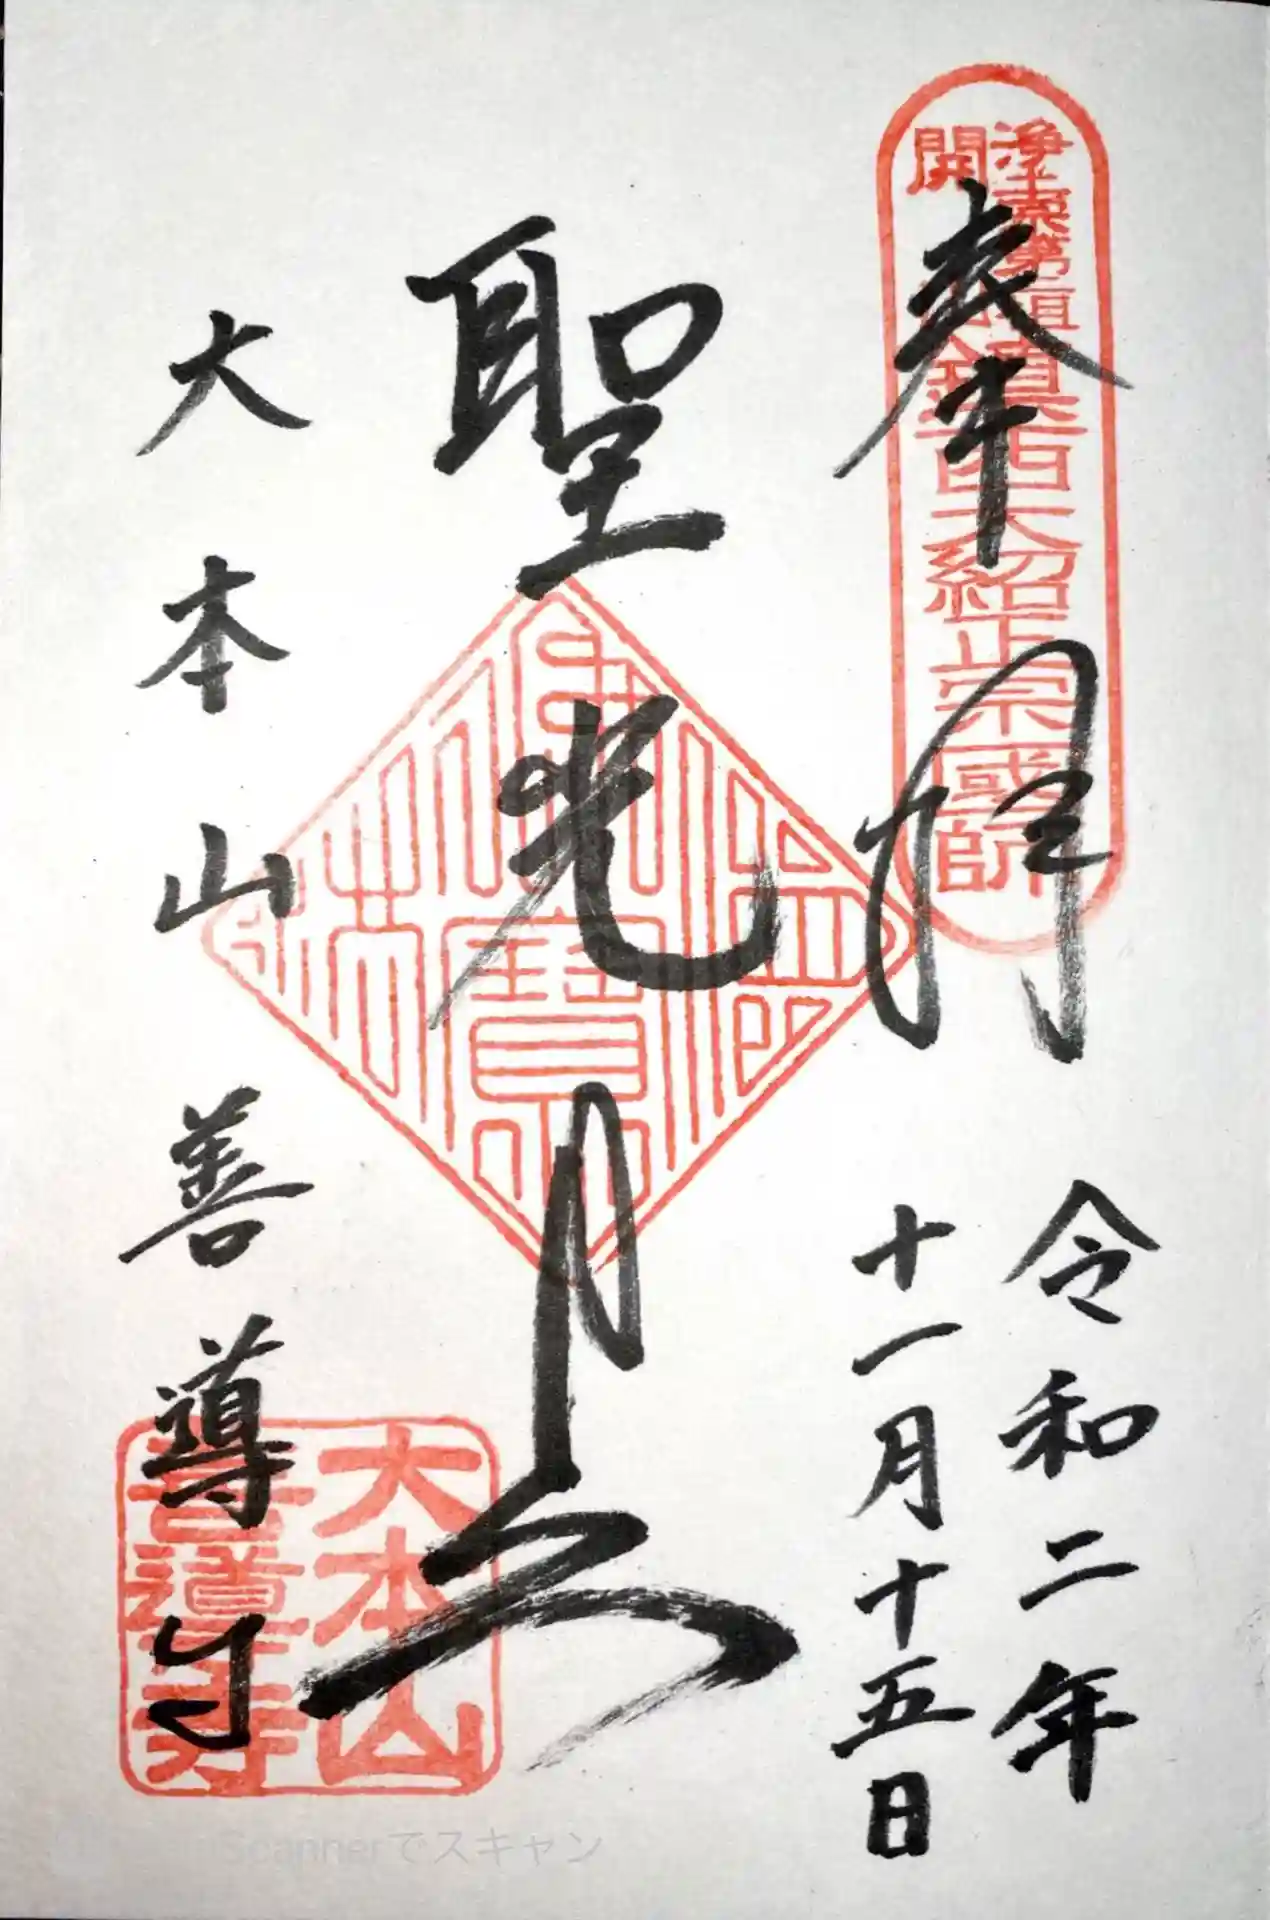 浄土宗第二祖
開山鎮西大紹正宗國師
奉拝
令和二年
十一月十五日
聖光上人
佛法僧寶
大本山善導寺
大本山
善導寺
Scannerでスキャン